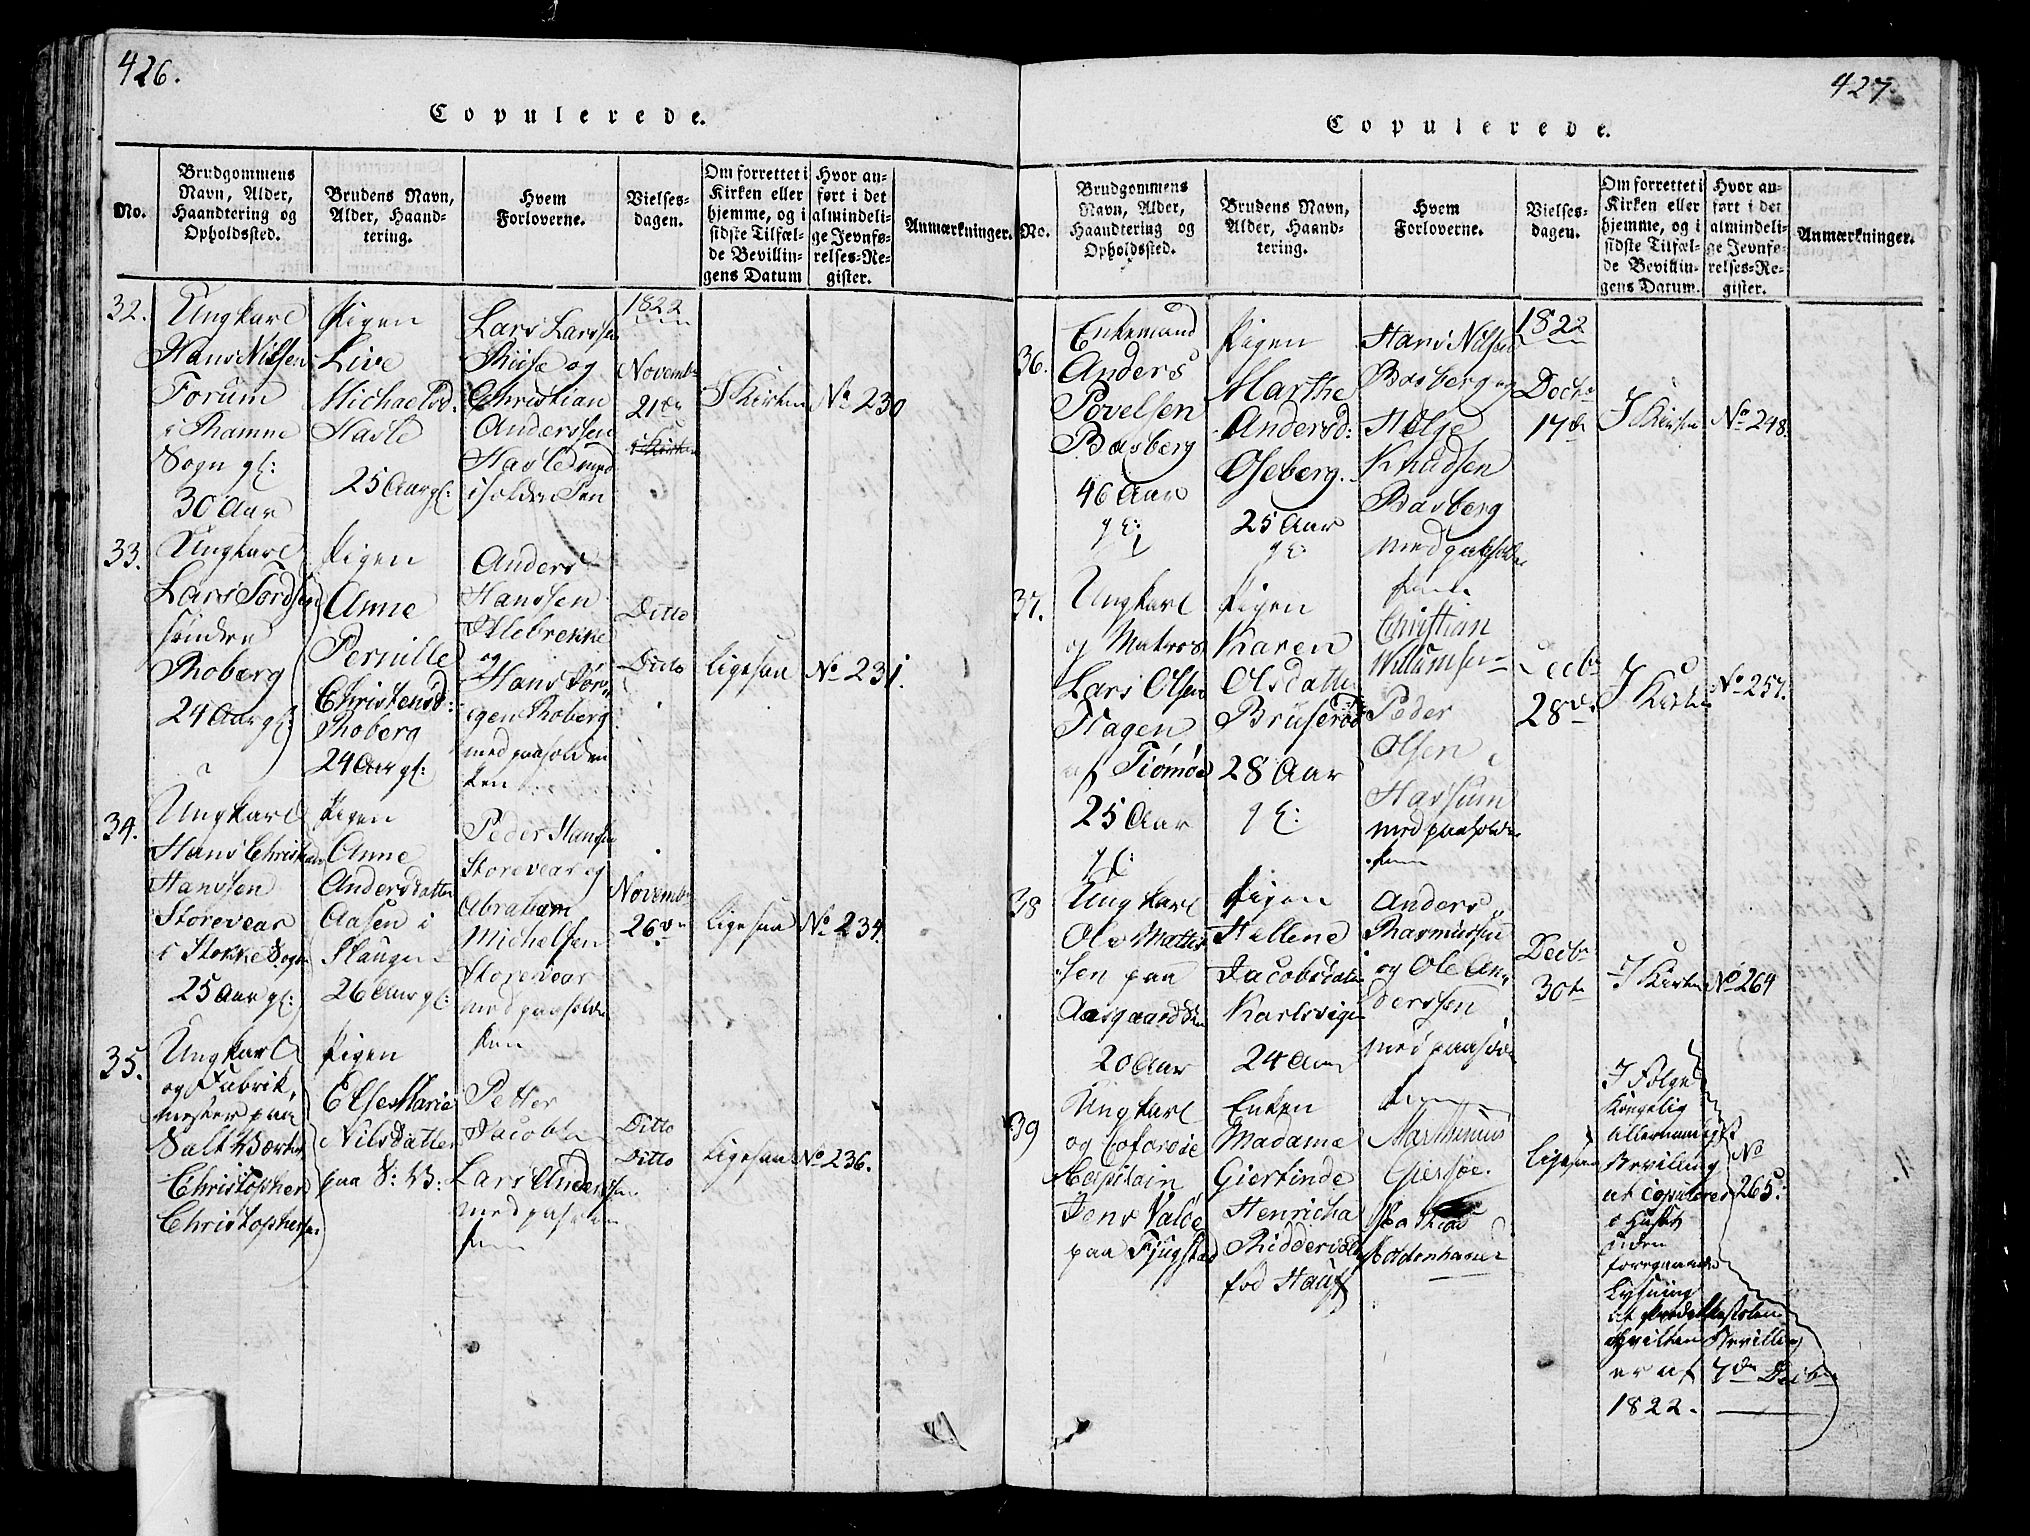 426.
Copulerede.
No.
Brudgommens
Navn, Alder,
Haandtering og
Opholdssted.
Brudens Navn,
Alder, Haand-
tering.
Hvem
Forloverne.
Vielses-
dagen.
Om forrettet i
Kirken eller
hjemme, og i
sidste Tilfæl-
de Bevillin-
gens Datum
Hvor an-
ført i det
almindeli-
ge Jevnfø-
relses-Re-
gister.
Anmærkninger.
32.
Ungkarl
Hans Nilssen
Forum
i Ramne
Sogn gl:
30 Aar
Pigen
Live
Michaelsd:
Hasle
25 Aar gl:
Lars Larssen
Riise og
Christian
Anderssen
Hasle
1822
Novembr
21de
i Kirken
I Kirken
No 230
33.
Ungkarl
Lars Tordsen
søndre
Roberg
24 Aar gl:
Pigen
Anne
Pernille
Christensd:
Roberg
24 Aar gl:
Anders
Hanssen
og
Hans Jør-
gen Roberg
Ditto
Ditto
ligesaa
No 231.
34.
Ungkarl
Hans Christian
Hanssen
Storevear
i Stokke Sogn
25 Aar gl:
Pigen
Anne
Andersdatter
Aasen i
Slaugen
26 Aar gl:
Peder Hansen
Storevear og
Abraham
Michelsen
Storevear
Novembr
26de
ligesaa
No 234.
35.
Ungkarl
og Fabrik,
mester paa
Salt Værket
Christopher
Christophersen
Pigen
Else Marie
Nilsdatter
paa S: V:
Petter
Jacobsen
Lars Anderssen
Ditto
Ditto
ligesaa
No 236.
427.
Copulerede.
No.
Brudgommens
Navn, Alder,
Haandtering og
Opholdssted.
Brudens Navn,
Alder, Haand-
tering.
Hvem
Forloverne.
Vielses-
dagen.
Om forrettet i
Kirken eller
hjemme, og i
sidste Tilfæl-
de Bevillin-
gens Datum.
Hvor an-
ført i det
almindeli-
ge Jevnfø-
relses-Re-
gister.
Anmærkninger.
36.
Enkemand
Anders
Povelsen
Basberg
46 Aar
gl:
Pigen
Marthe
Andersd:
Oseberg.
25 Aar
gl:
Hans Nilsen
Basberg og
Helge
Knudsen
Basberg
1822
Decbr
17de
I Kirken
No 248.
37.
Ungkarl
og Matros
Lars Olsen
Hagen
af Tiømøe
25 Aar
gl:
Pigen
Karen
Olsdatter
Bruserød
28 Aar
gl:
Christian
Willumsen
Peder
Olsen
Hassum
Decbr
28de
I Kirken
No 257.
38
Ungkarl
Ole Mathis-
sen paa
Aasgaardstrand
20 Aar
Pigen
Hellene
Jacobsdatter
Karlsvigen
24 Aar
Anders
Rasmussen
og Ole An-
derssen
Decbr
30te
I Kirken
No 264
39
Ungkarl
og Coforødie
Capitain
Jens Valøe
paa Fjugstad
Enken
Madame
Giertinde
Henricha
Riddervold
fød Hauff
Marthinius
Giersøe.
Mathias
Foldenhauer
ligesaa
I Følge
Kongelig
Allernaadigst
Bevilling
at copuleres
i Huset
uden
foregaaende
Lysning
af Prædikestolen
hvilken Bevilling
er af 7de Decbr
1822.
No
265.